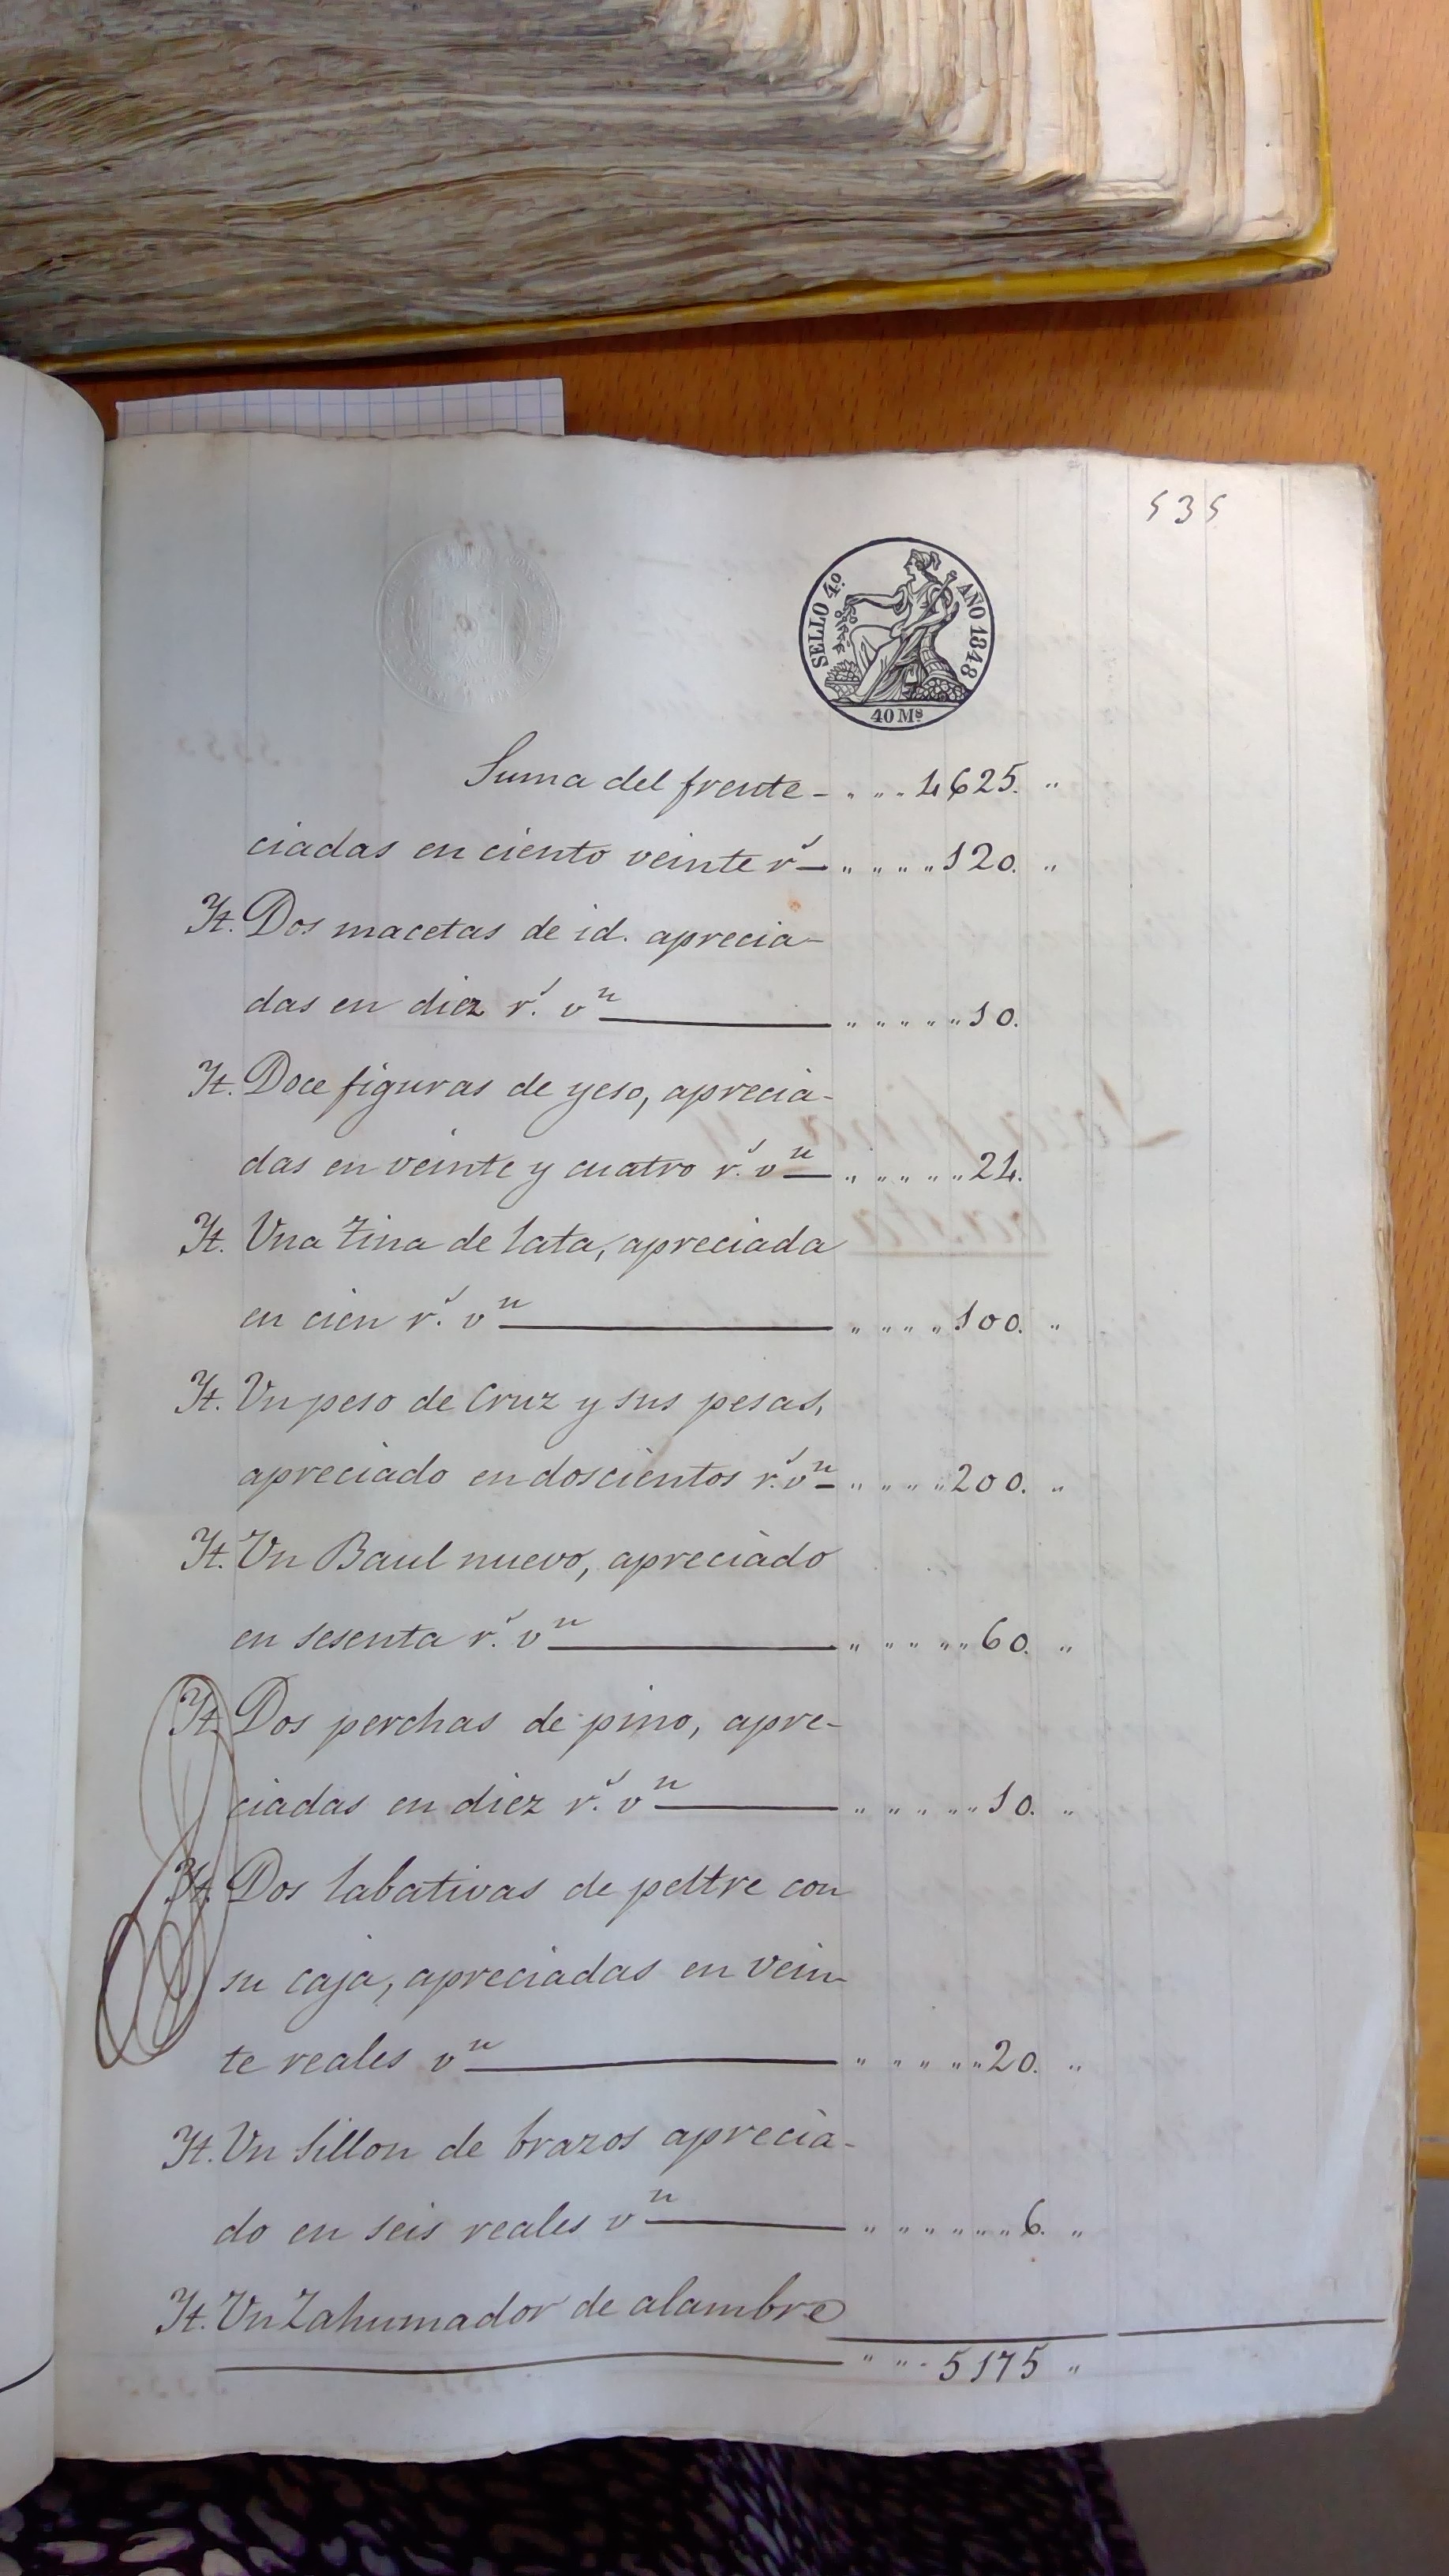 535
SELLO 4º. AÑO 1848
40 Ms
Suma del frente - 4625. "
ciadas en ciento veinte rs " " " " 120. "
It. Dos macetas de id. aprecia-
das en diez rs. vn " " " " " 10.
It. Doce figuras de yeso, aprecia-
das en veinte y cuatro rs. vn " " " " " 24.
It. Una tina de lata, apreciada
en cien rs. vn " " " " 100. "
It. Un peso de Cruz y sus pesas,
apreciado en doscientos rs. vn " " " " 200. "
It. Un Baul nuevo, apreciado
en sesenta rs. vn " " " " " 60. "
It. Dos perchas de pino, apre-
ciadas en diez rs. vn " " " " " 10. "
It. Dos labativas de peltre con
su caja, apreciadas en vein-
te reales vn " " " " " 20. "
It. Un Sillon de brazos aprecia-
do en seis reales vn " " " " " " 6. "
It. Un Zahumador de alambre
" " " 5175 "